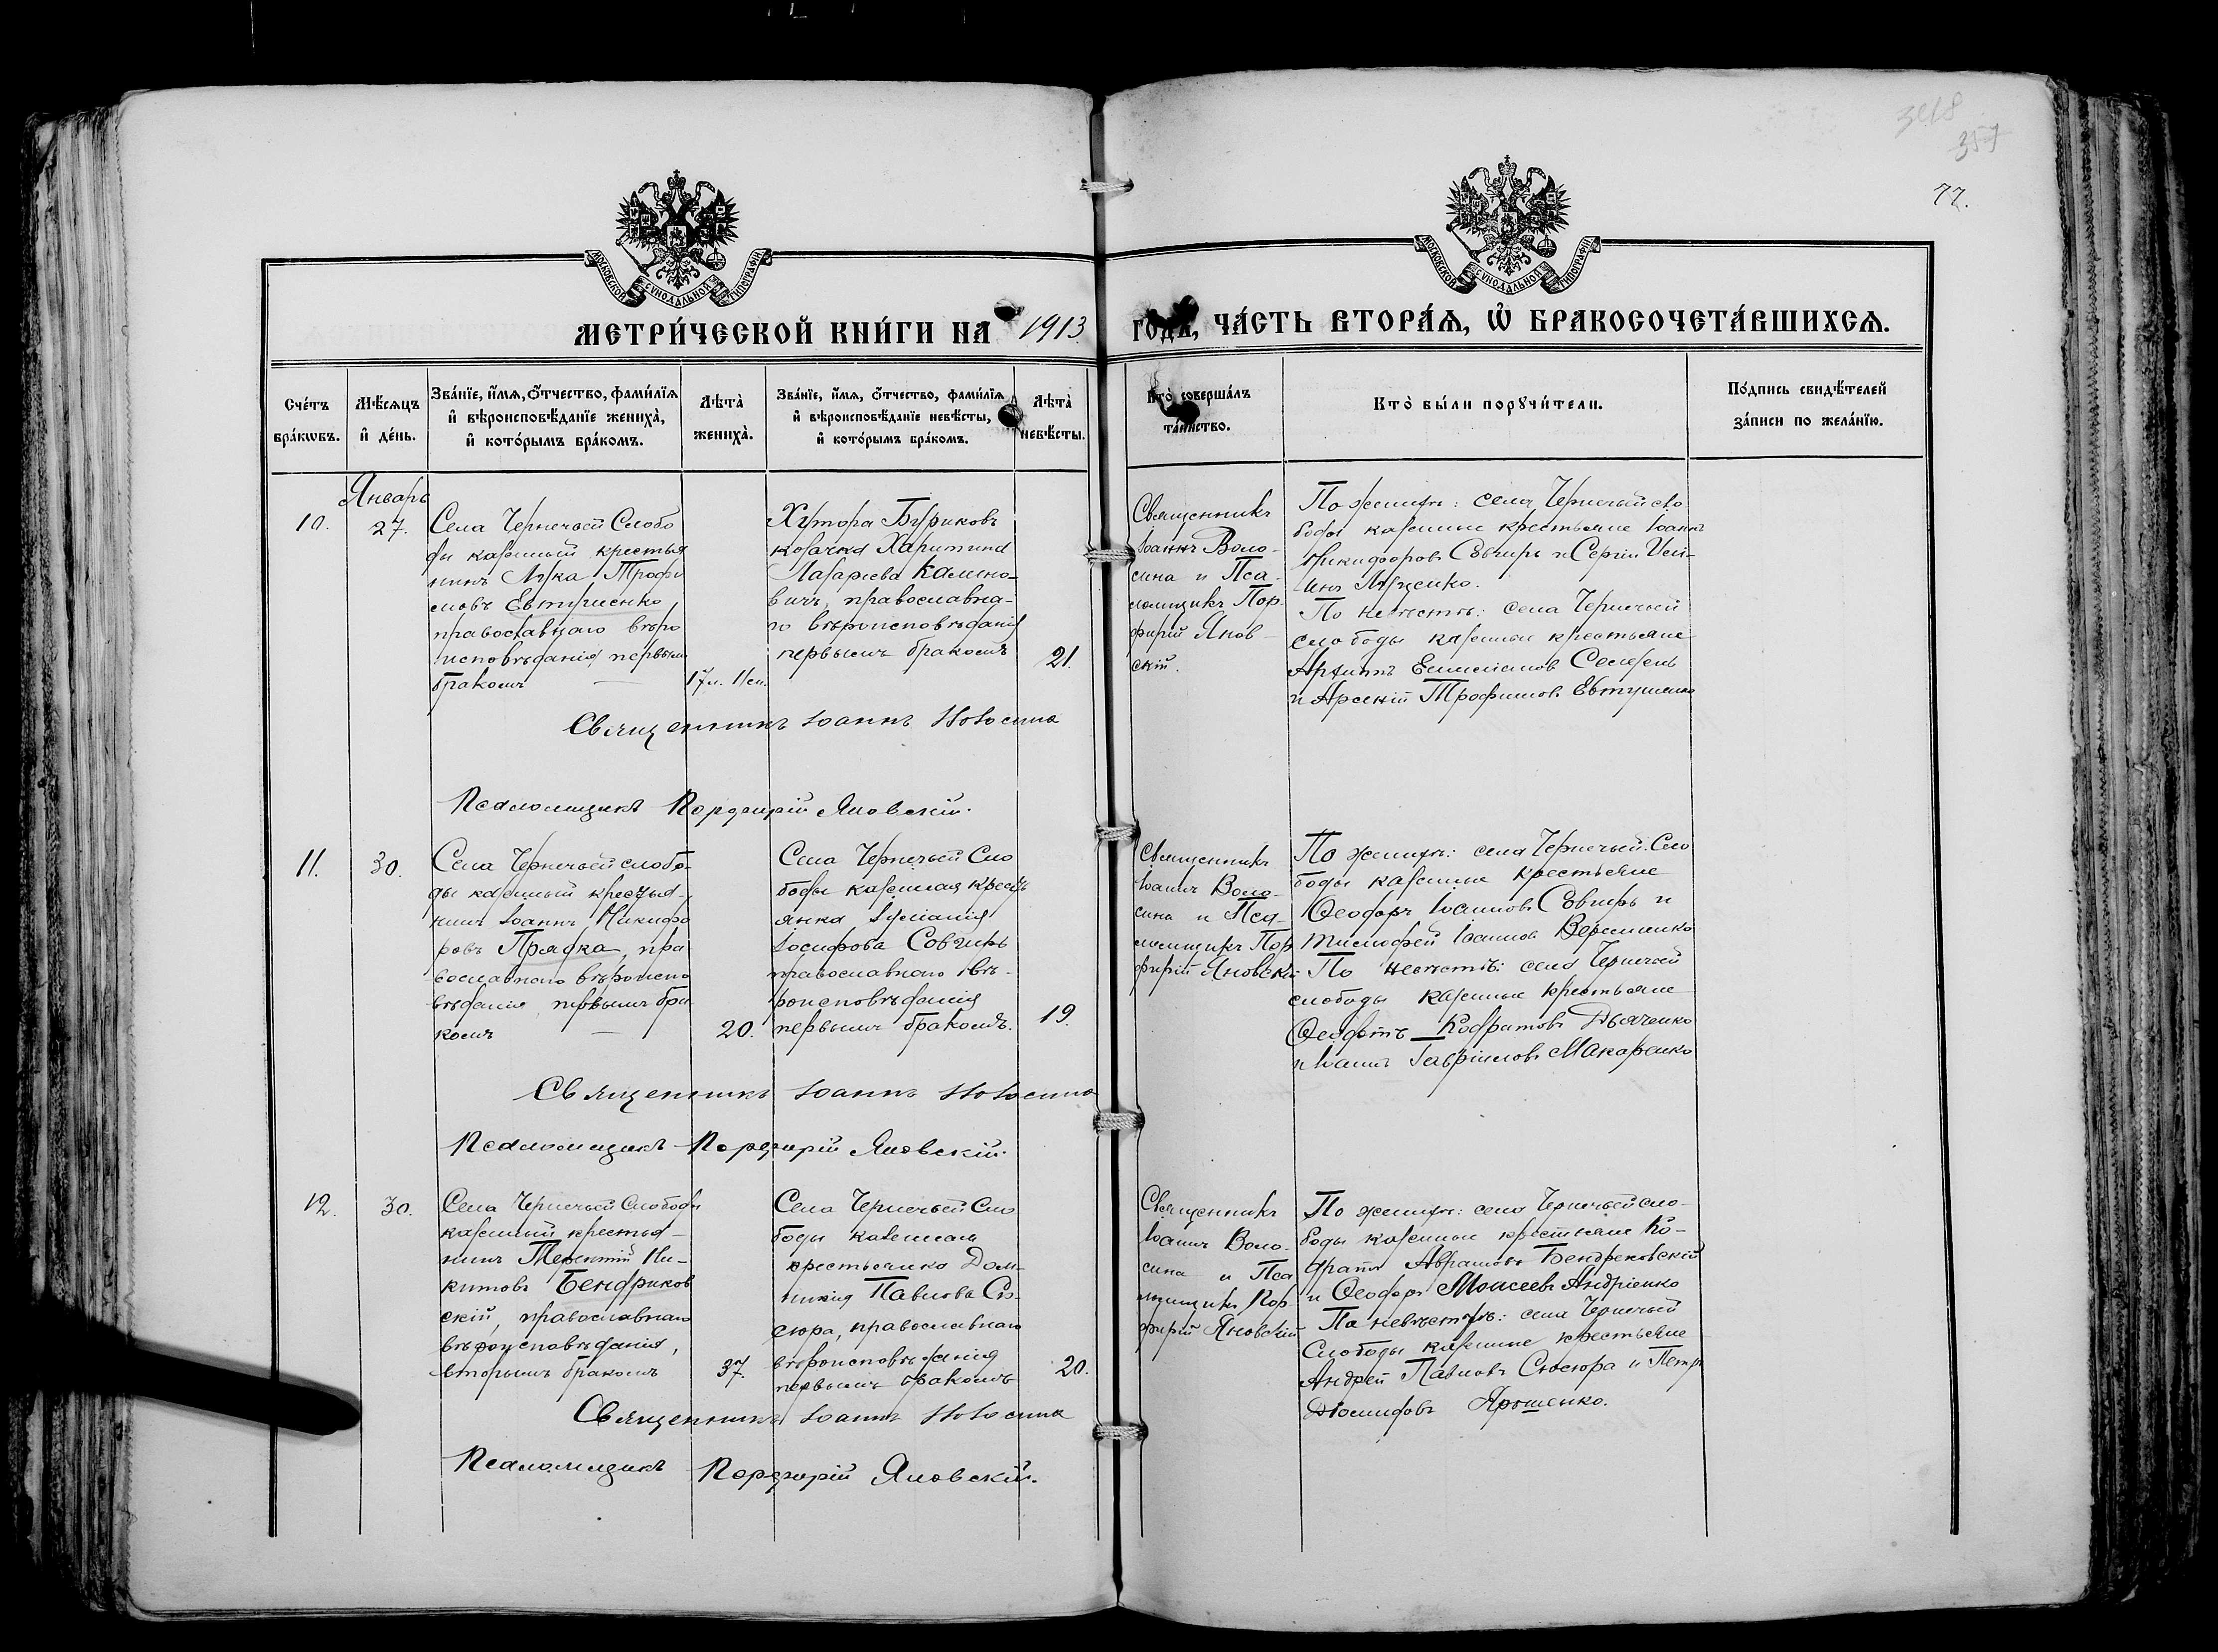 3418
357
77.
МОСКОВСКОЙ СѴНОДАЛЬНОЙ ТИПОГРАФІИ
МОСКОВСКОЙ СѴНОДАЛЬНОЙ ТИПОГРАФІИ
МЕТРИ́ЧЕСКОЙ КНИ́ГИ НА 1913 ГОДЪ, ЧА́СТЬ ВТОРА́Ѧ, Ѡ҆ БРАКОСОЧЕТА́ВШИХСѦ.
Сче́тъ
бра́кѡвъ.
Мѣ́сѧцъ
и҆ де́нь.
Зва́нїе, и҆́мѧ, ѻ҆́тчество, фами́лїѧ
и҆ вѣроисповѣ́данїе жениха̀,
и҆ кото́рымъ бра́комъ.
Лѣта̀
жениха̀.
Зва́нїе, и҆́мѧ, ѻ҆́тчество, фами́лїѧ
и҆ вѣроисповѣ́данїе невѣ́сты,
и҆ кото́рымъ бра́комъ.
Лѣта̀
невѣ́сты.
Кто̀ соверша́лъ
та́инство.
Кто̀ бы́ли порꙋчи́тели.
По́дпись свидѣ́телей
за́писи по жела́нїю.
Январь
10.
27.
Села Чернечьей Слобо
ды казенный крестья
нинъ Лука Трофи
мовъ Евтушенко
православнаго вѣро
исповѣданія первымъ
бракомъ
17 л. 11 м.
Хутора Буриковъ
козачка Харитина
Лазарева Калино-
вичъ, православна-
го вѣроисповѣданія
первымъ бракомъ
21.
Священникъ
Іоаннъ Воло-
сина и Пса-
ломщикъ Пор-
фирій Янов-
скій.
По женихѣ: села Чернечьей сло
боды казенные крестьяне Іоаннъ
Никифоровъ Совгирь и Сергій
Луценко.
По невѣстѣ: села Чернечьей
слободы казенные крестьяне
Архипъ Емиліановъ Селезень
и Арсеній Трофимовъ Евтушенко
Священникъ Іоаннъ Волосина
Псаломщикъ Порфирій Яновскій.
11.
30.
Села Чернечьей слобо-
ды казенный крестья-
нинъ Іоаннъ Никифо
ровъ Прядка, пра
вославнаго вѣроиспо
вѣданія, первымъ бра
комъ
20.
Села Чернечьей Сло
боды казенная кресть
янка Іуліанія
Іосифова Совгирь
православнаго вѣ-
роисповѣданія
первымъ бракомъ.
19.
Священникъ
Іоаннъ Воло-
сина и Пса-
ломщикъ Пор
фирій Яновскій
По женихѣ: села Чернечьей Сло
боды казенные крестьяне
Ѳеодоръ Іоанновъ Совгирь и
Тимофей Іоанновъ
По невѣстѣ: села Чернечьей
слободы казенные крестьяне
Ѳеодотъ Кодратовъ Дьяченко
и Іоаннъ Гавріиловъ Макаренко
Священникъ Іоаннъ Волосина
Псаломщикъ Порфирій Яновскій.
12.
30.
Села Чернечьей Слободы
казенный крестья-
нинъ Терентій Ни-
китовъ Бендриков
скій, православнаго
вѣроисповѣданія,
вторымъ бракомъ
37.
Села Чернечьей Сло
боды казенная
крестьянка Дом-
никія Павлова Сю-
сюра, православнаго
вѣроисповѣданія
первымъ бракомъ
20.
Священникъ
Іоаннъ Воло-
сина и Пса
ломщикъ Пор-
фирій Яновскій
По женихѣ: села Чернечьей сло-
боды казенные крестьяне Ко-
дратъ Аврамовъ Бендрековскій
и Ѳеодоръ Моисеевъ Андріенко
По невѣстѣ: села Чернечьей
Слободы казенные крестьяне
Андрей Павловъ Сюсюра и Петръ
Ярошенко.
Священникъ Іоаннъ Волосина
Псаломщикъ Порфирій Яновскій.